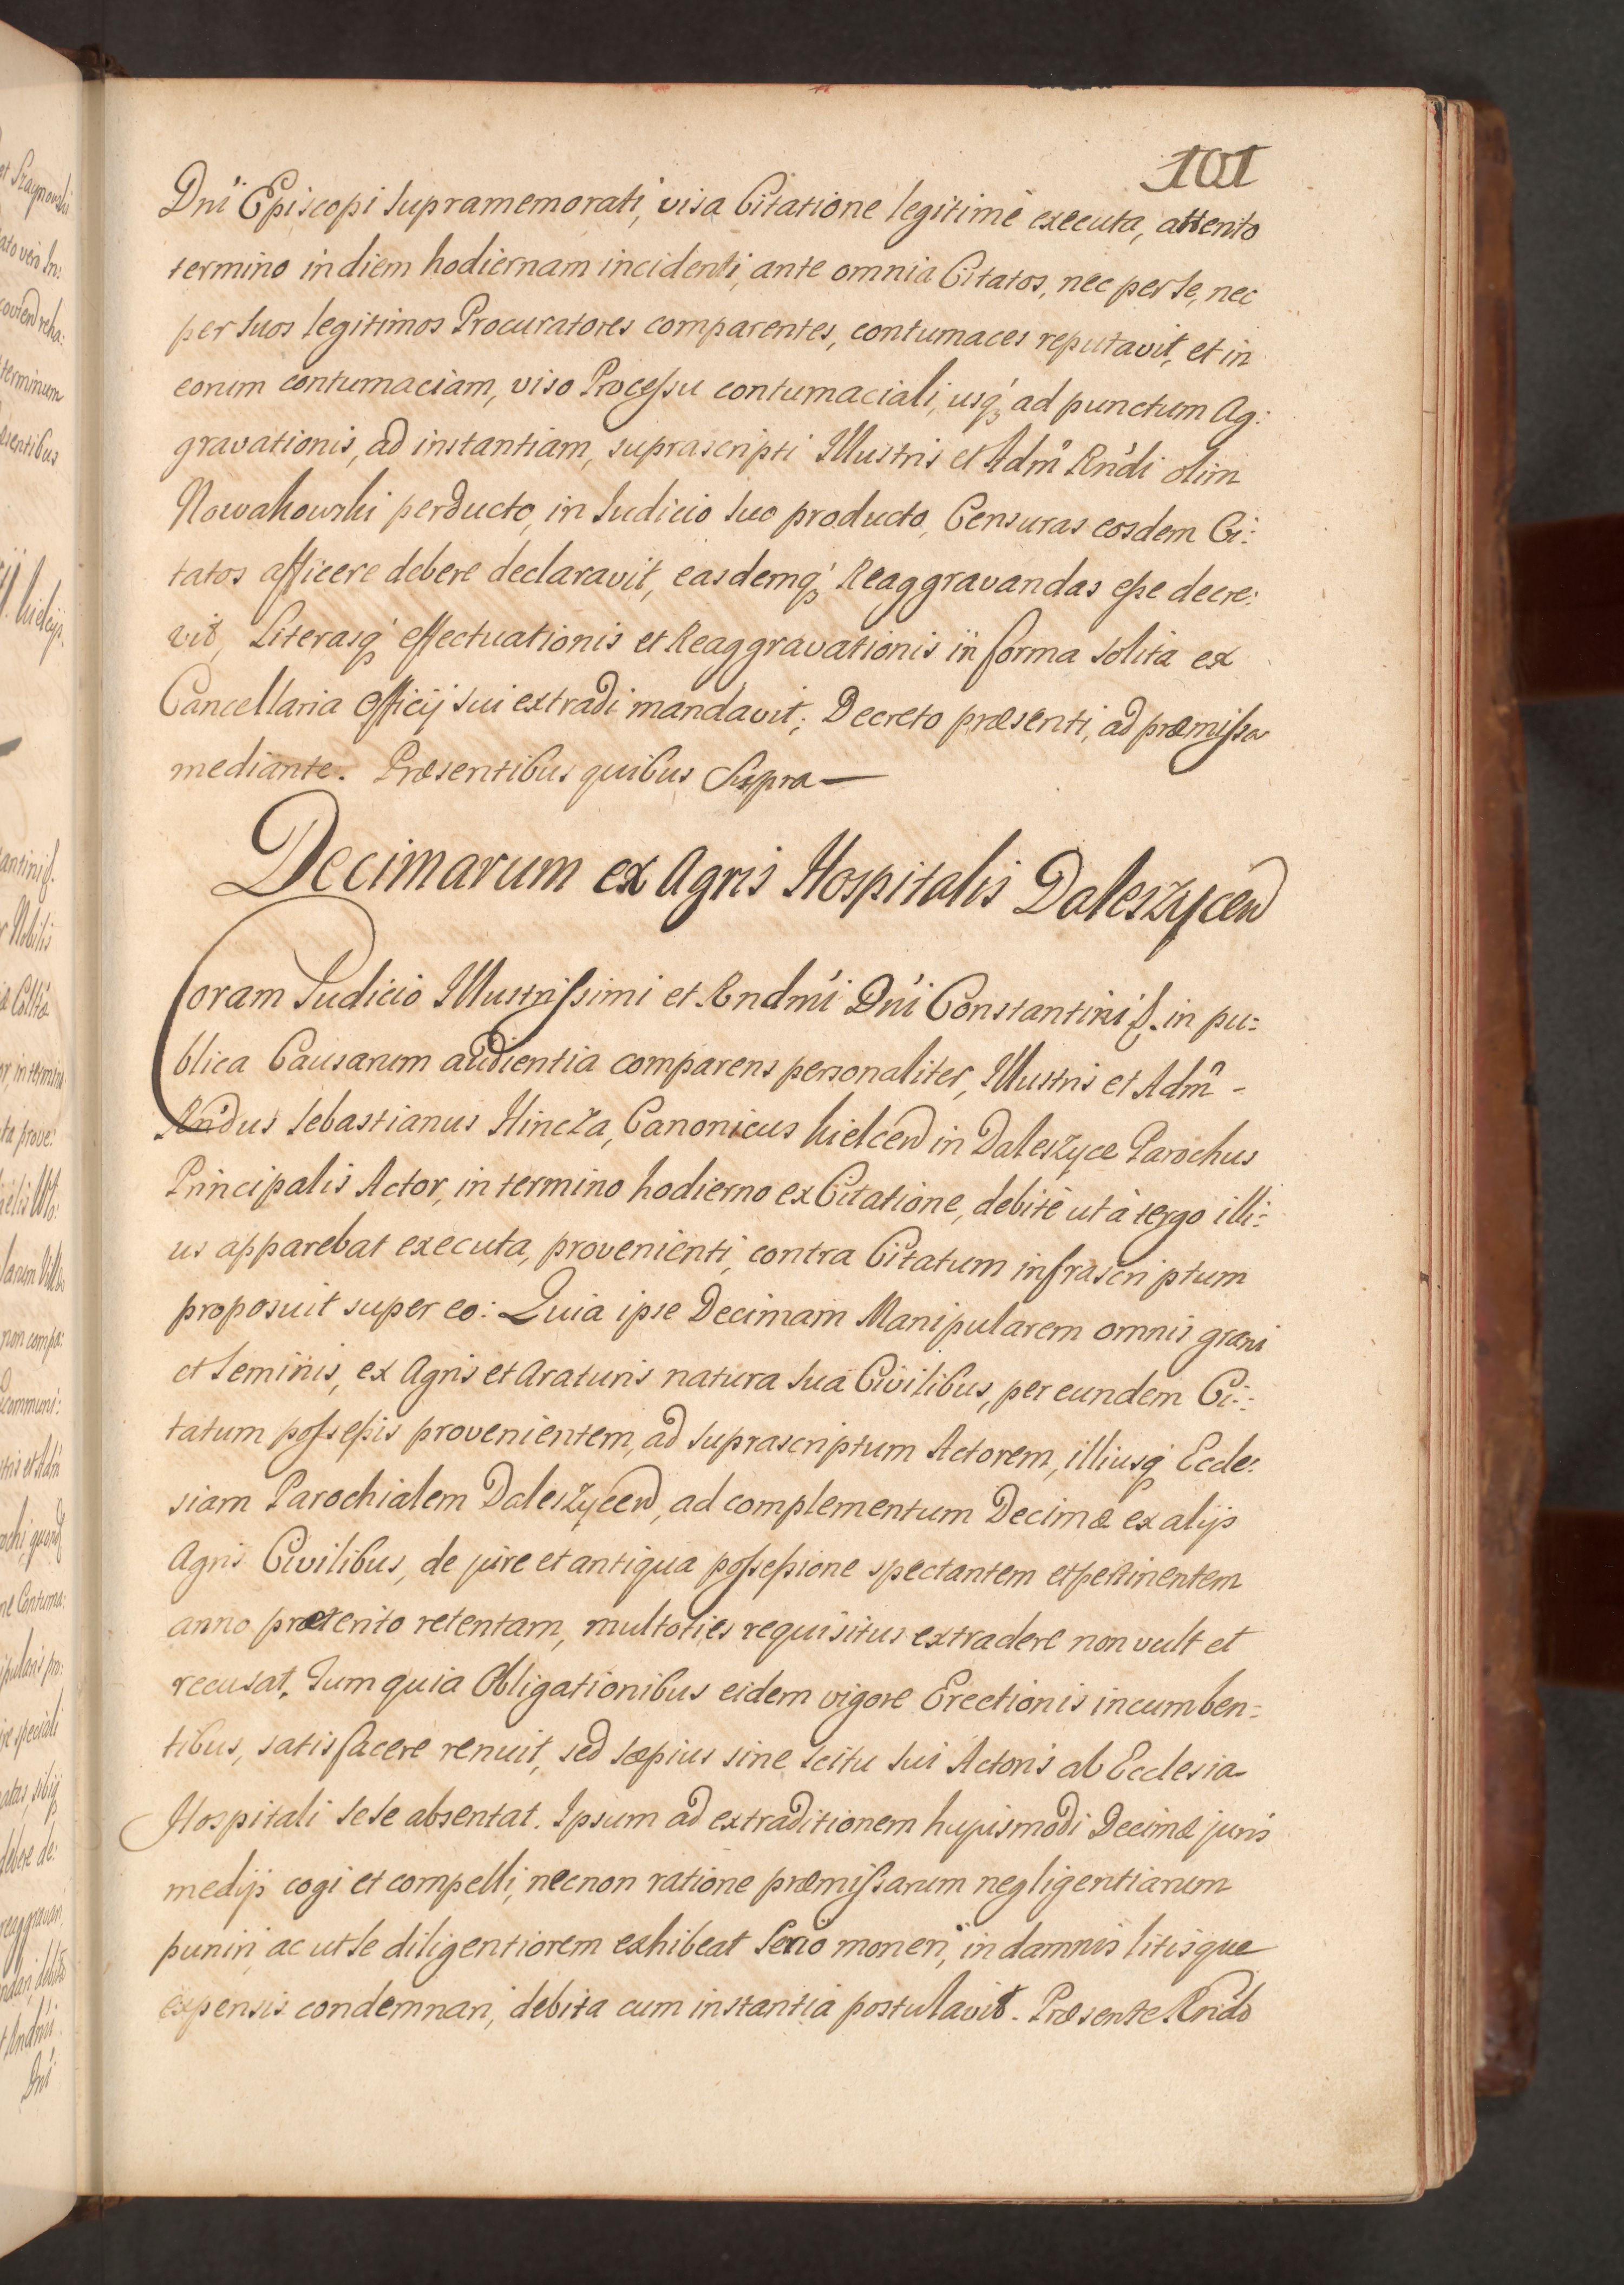 101
Dnī Episcopi supramemorati, visa Citatione legitimè executa, attento
termino in diem hodiernam incidenti, ante omnia Citatos, nec per se, nec
per suos legitimos Procuratores comparentes, contumaces reputavit, et in
eorum contumaciam, viso Processu contumaciali, usq́ ad punctum Ag:
gravationis, ad instantiam, suprascripti Illustris et Admº Rńdi olim
Nowakowski perducto, in Judicio suo producto, Censuras eosdem Ci:
tatos afficere debere declaravit, easdemq́ Reaggravandas esse decre:
vit, Literasq́ effectuationis et Reaggravationis in forma solita ex
Cancellaria Officij sui extradi mandavit; Decreto præsenti, ad præmissa
mediante. Præsentibus quibus Supra —
Decimarum ex Agris Hospitalis Daleszyceñ
Coram Judicio Illustrissimi et Rndmī Dnī Constantini &. in pu:
blica Causarum audientia comparens personaliter, Illustris et Admº -
Rńdus Sebastianus Hincza, Canonicus Kielceñ in Daleszyce Parochus
Principalis Actor, in termino hodierno ex Citatione, debitè ut à tergo illi:
us apparebat executa, provenienti, contra Citatum infrascriptum
proposuit super eo: Quia ipse Decimam Manipularem omnis grani
et Seminis, ex Agris et Araturis natura sua Civilibus, per eundem Ci:
tatum possessis provenientem, ad suprascriptum Actorem, illiusq́ Eccle:
siam Parochialem Daleszyceñ, ad complementum Decimæ ex alijs
Agris Civilibus, de jure et antiqua possessione spectantem et pertinentem
anno præterito retentam, multoties requisitus extradere non vult et
recusat. Tum quia Obligationibus eidem vigore Erectionis incumben:
tibus, satisfacere renuit, sed sæpius sine scitu sui Actoris ab Ecclesia
Hospitali sese absentat. Ipsum ad extraditionem hujusmodi Decimæ juris
medijs cogi et compelli, necnon ratione præmissarum negligentiarum
puniri, ac ut se diligentiorem exhibeat serio moneri, in damnis litisque
expensis condemnari, debita cum instantia postulavit. Præsente Rńdo